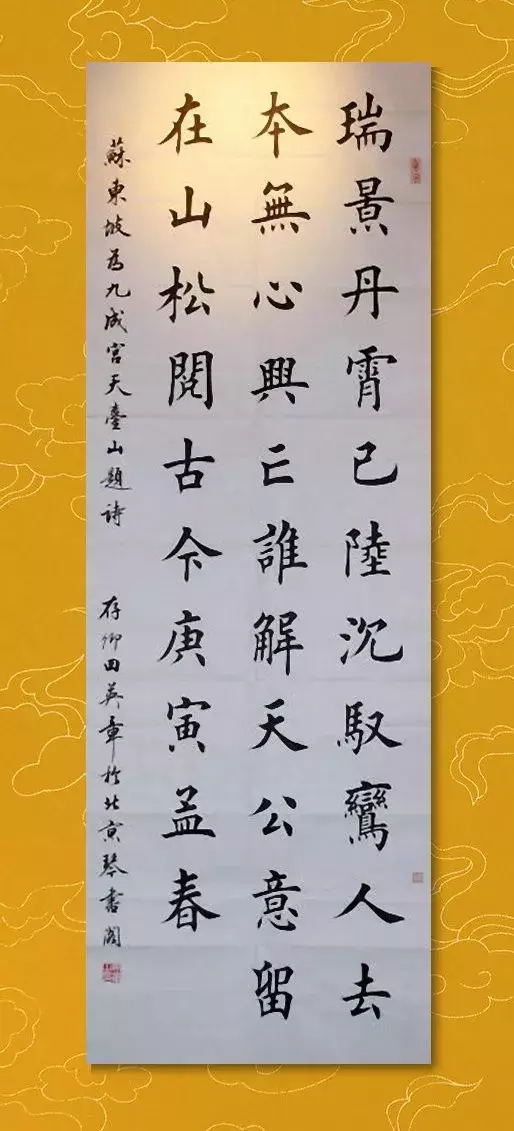 瑞景丹霄已陸沉馭鸞人去
本無心興亡誰解天公意留
在山松閱古今庚寅孟春
蘇東坡為九成宮天臺山題詩 存卿田英章於北京琴書閣